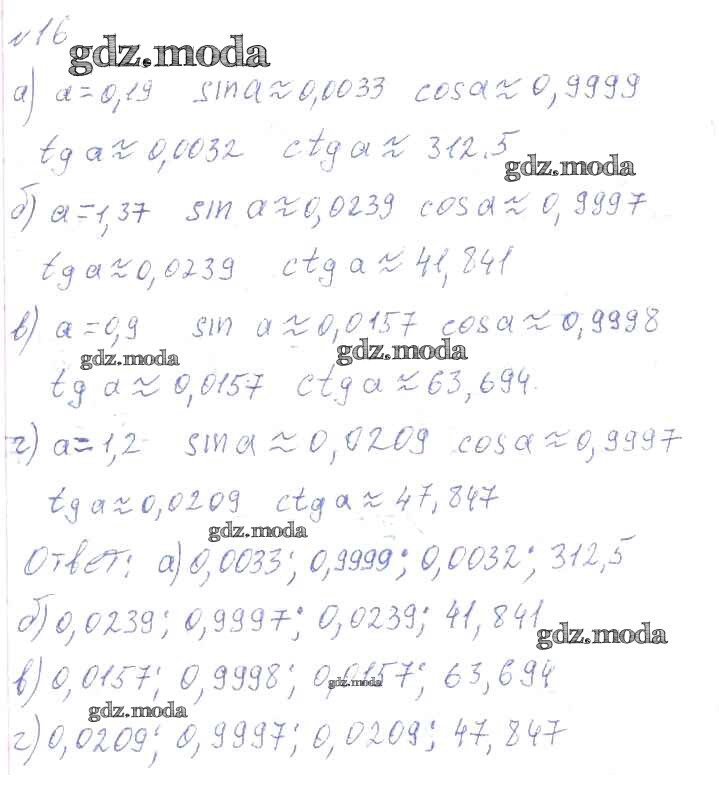 №16
gdz.moda
а) a=0,19 sin a≈0,0033 cos a≈0,9999
tg a≈0,0032 ctg a≈312.5
gdz.moda
б) a=1,37 sin a≈0,0239 cos a≈0,9997
tg a≈0,0239 ctg a≈41,841
в) a=0,9 sin a≈0,0157 cos a≈0,9998
gdz.moda gdz.moda
tg a≈0,0157 ctg a≈63,694.
г) a=1,2 sin a≈0,0209 cos a≈0,9997
tg a≈0,0209 ctg a≈47,847
gdz.moda
Ответ: а) 0,0033; 0,9999; 0,0032; 312,5
б) 0,0239; 0,9997; 0,0239; 41,841
gdz.moda
в) 0,0157; 0,9998; 0,0157; 63,694
gdz.moda
gdz.moda
г) 0,0209; 0,9997; 0,0209; 47,847